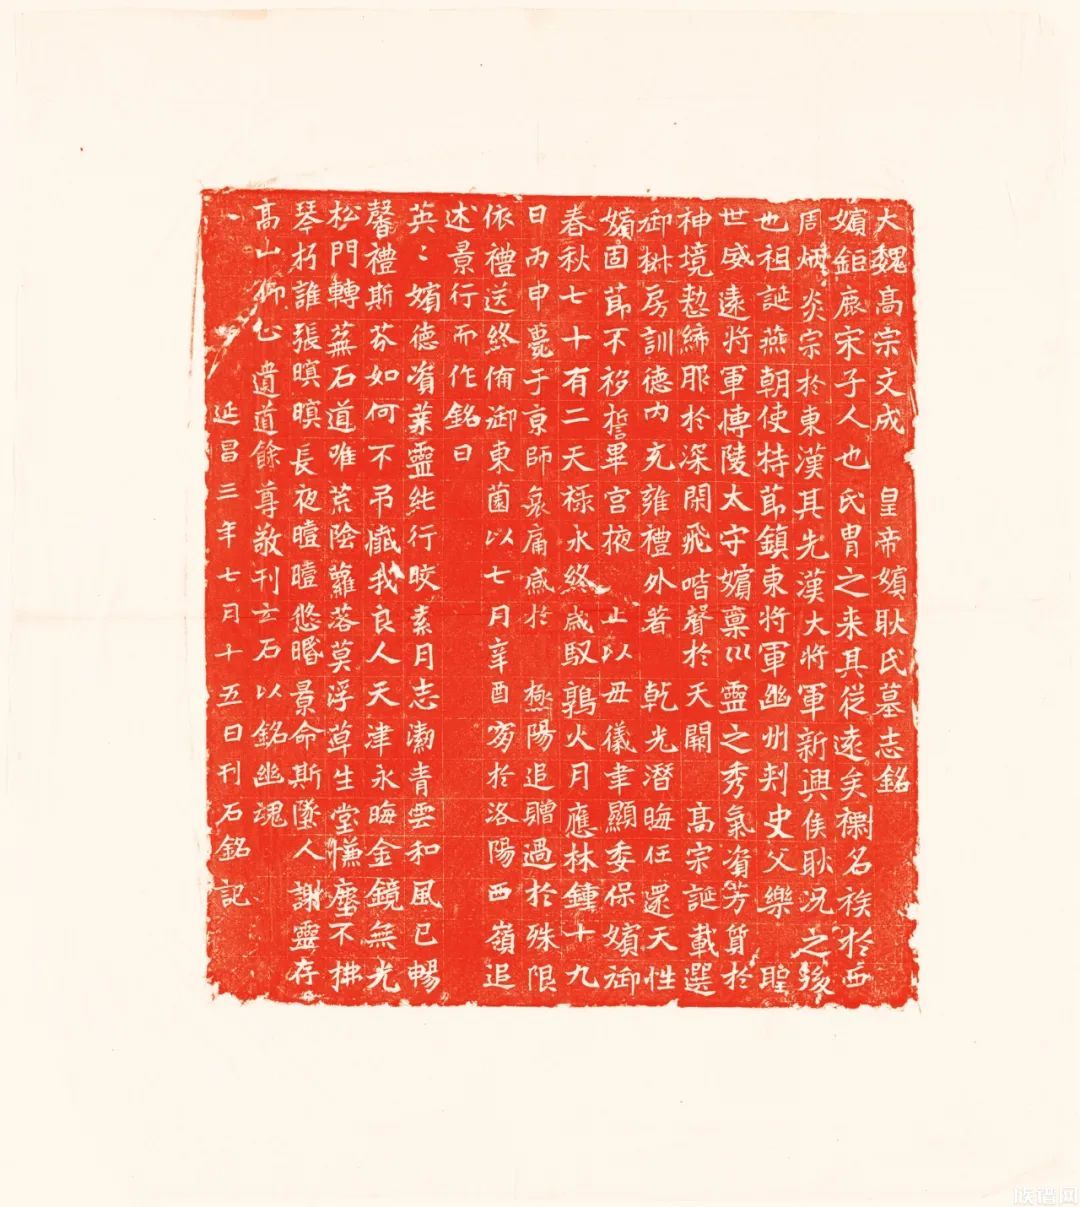 大魏高宗文成　皇帝嬪耿氏墓志銘
嬪鉅鹿宋子人也氏胄之来其從遠矣標名族於西
周炳炎宗於東漢其先漢大將軍新興侯耿況之後
也祖誕燕朝使持節鎮東將軍幽州刺史父樂　聖
世威遠將軍博陵太守嬪稟川靈之秀氣資芳質於
神境懃絺服於深閑飛喈聲於天闈　高宗誕載選
御椒房訓德内充雍禮外著　乾光潛晦任還天性
嬪固節不移誓畢宫掖　止以毋儀聿顯委保嬪御
春秋七十有二天禄永終歲馭鶉火月應林鍾十九
日丙申薨于京師哀痛感於　極陽追贈過於殊限
依禮送終備御東薗以七月辛酉窆於洛陽西嶺追
述景行而作銘曰
英〻嬪德資業靈純行晈素月志潔青雲和風已暢
馨禮斯芬如何不吊殲我良人天津永晦金鏡無光
松門轉蕪石道唯荒陰蘿落莫浮草生堂慊塵不拂
琴朽誰張暝暝長夜曀曀悠昏景命斯墜人謝靈存
高山仰止遺道餘尊敬刊玄石以銘幽魂
延昌三年七月十五日刊石銘記
族譜网